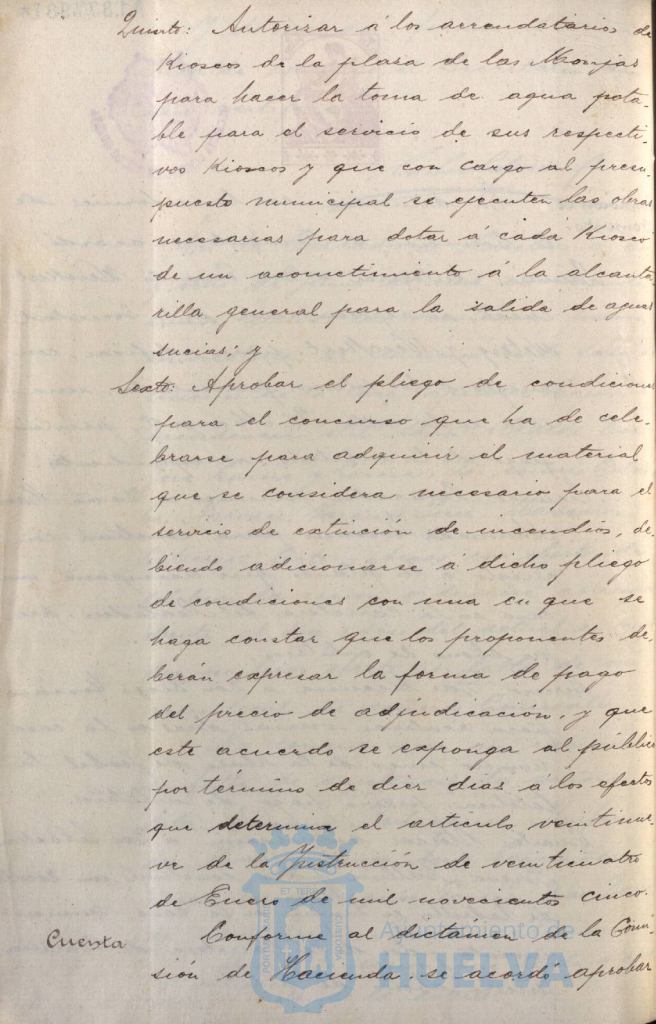 Quinto: Autorizar á los arrendatarios de
Kioscos de la plaza de las Monjas
para hacer la toma de agua pota-
ble para el servicio de sus respecti-
vos Kioscos y que con cargo al presu-
puesto municipal se ejecuten las obras
necesarias para dotar á cada Kiosco
de un acometimiento á la alcanta-
rilla general para la salida de aguas
sucias; y
Sexto: Aprobar el pliego de condiciones
para el concurso que ha de cele-
brarse para adquirir el material
que se considera necesario para el
servicio de extinción de incendios, de-
biendo adicionarse á dicho pliego
de condiciones con una en que se
haga constar que los proponentes de-
berán expresar la forma de pago
del precio de adjudicación, y que
este acuerdo se exponga al público
por término de diez dias á los efectos
que determina el articulo veintinue-
ve de la Instrucción de veinticuatro
de Enero de mil novecientos cinco.
Cuenta
Conforme al dictámen de la Comi-
sión de Hacienda se acordó aprobar
Ayuntamiento de
HUELVA